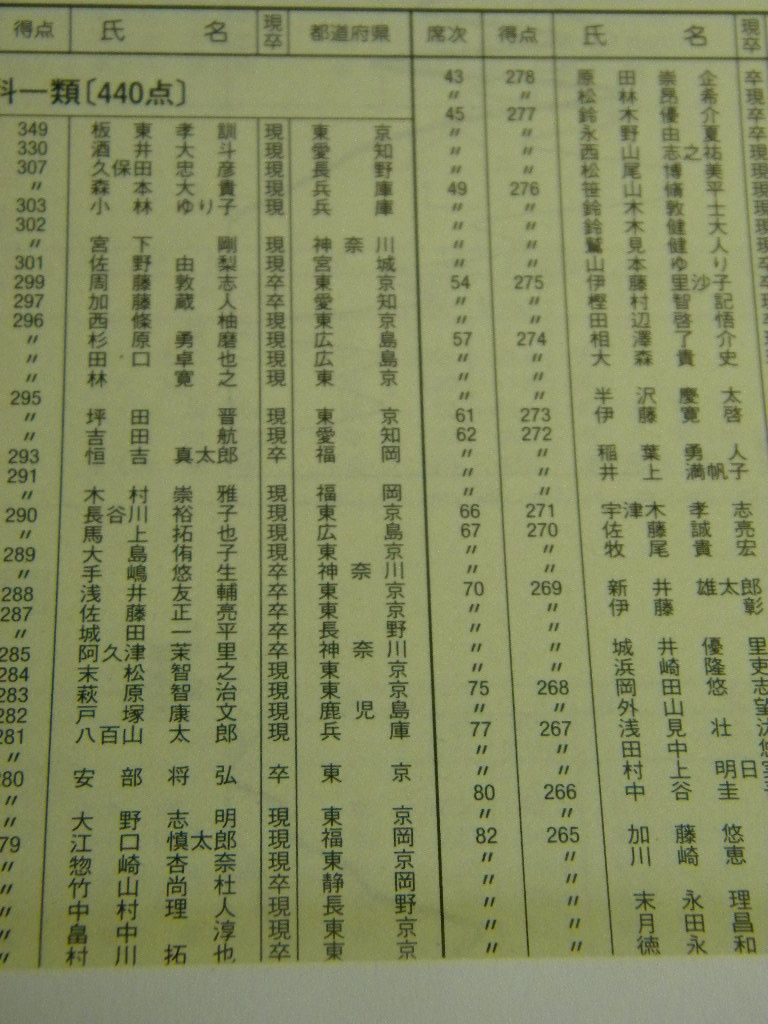 得点 氏名 現卒 都道府県
科一類〔440点〕
349 板東孝訓 現 東京
330 酒井大斗 現 愛知
307 久保田忠彦 現 長野
〃 森本大貴 現 兵庫
303 小林ゆり子 現 兵庫
302
〃 宮下剛 現 神奈川
301 佐野由梨 現 宮城
299 周藤敦志 卒 東京
297 加藤蔵人 卒 愛知
296 西條柚 現 東京
〃 杉原勇磨 現 広島
〃 田口卓也 現 広島
〃 林寛之 現 東京
295
〃 坪田晋 現 東京
〃 吉田航 現 愛知
293 恒吉真太郎 卒 福岡
291
〃 木村崇雅 現 福岡
290 長谷川裕子 現 東京
〃 馬上拓也 現 広島
289 大島侑子 現 東京
〃 手嶋悠生 卒 神奈川
288 浅井友輔 卒 東京
287 佐藤正亮 卒 東京
〃 城田一平 卒 長野
285 阿久津茉里 卒 神奈川
284 末松智之 現 東京
283 萩原智治 現 東京
282 戸塚康文 現 鹿児島
281 八百山太郎 現 兵庫
〃
280 安部将弘 卒 東京
〃
〃 大野志明 現 東京
79 江口慎太郎 現 福岡
〃 惣崎杏奈 現 東京
〃 竹山尚杜 卒 静岡
〃 中村理人 現 長野
〃 畠中淳 現 東京
〃 村川拓也 卒 東京
席次 得点 氏名 現卒
43 278 原田崇企 卒
〃 〃 松林昂希 現
45 277 鈴木優介 卒
〃 〃 永野由夏 卒
〃 〃 西山志之祐 現
〃 〃 松尾博美 現
49 276 笹山脩平 現
〃 〃 鈴木敦士 現
〃 〃 鈴木健大 現
〃 〃 鷲見健人 現
〃 〃 山本ゆり
54 275 伊藤里沙子
〃 〃 樫村智記
〃 〃 田辺啓悟
57 274 相澤了介
〃 〃 大森貴史
〃 〃
〃 〃 半沢慶太
61 273 伊藤寛啓
62 272
〃 〃 稲葉勇人
〃 〃 井上満帆子
〃 〃
66 271 宇津木孝志
67 270 佐藤誠亮
〃 〃 牧尾貴宏
〃 〃
70 269 新井雄太郎
〃 〃 伊藤彰
〃 〃
〃 〃 城井優里
〃 〃 浜崎隆吏
75 268 岡田悠志
〃 〃 外山望
77 267 浅見壮
〃 〃 田中悠
〃 〃 村上明日
80 266 中谷圭
〃 〃
82 265 加藤悠
〃 〃 川崎恵
〃 〃
〃 〃 末永理
〃 〃 月田昌
〃 〃 徳永和